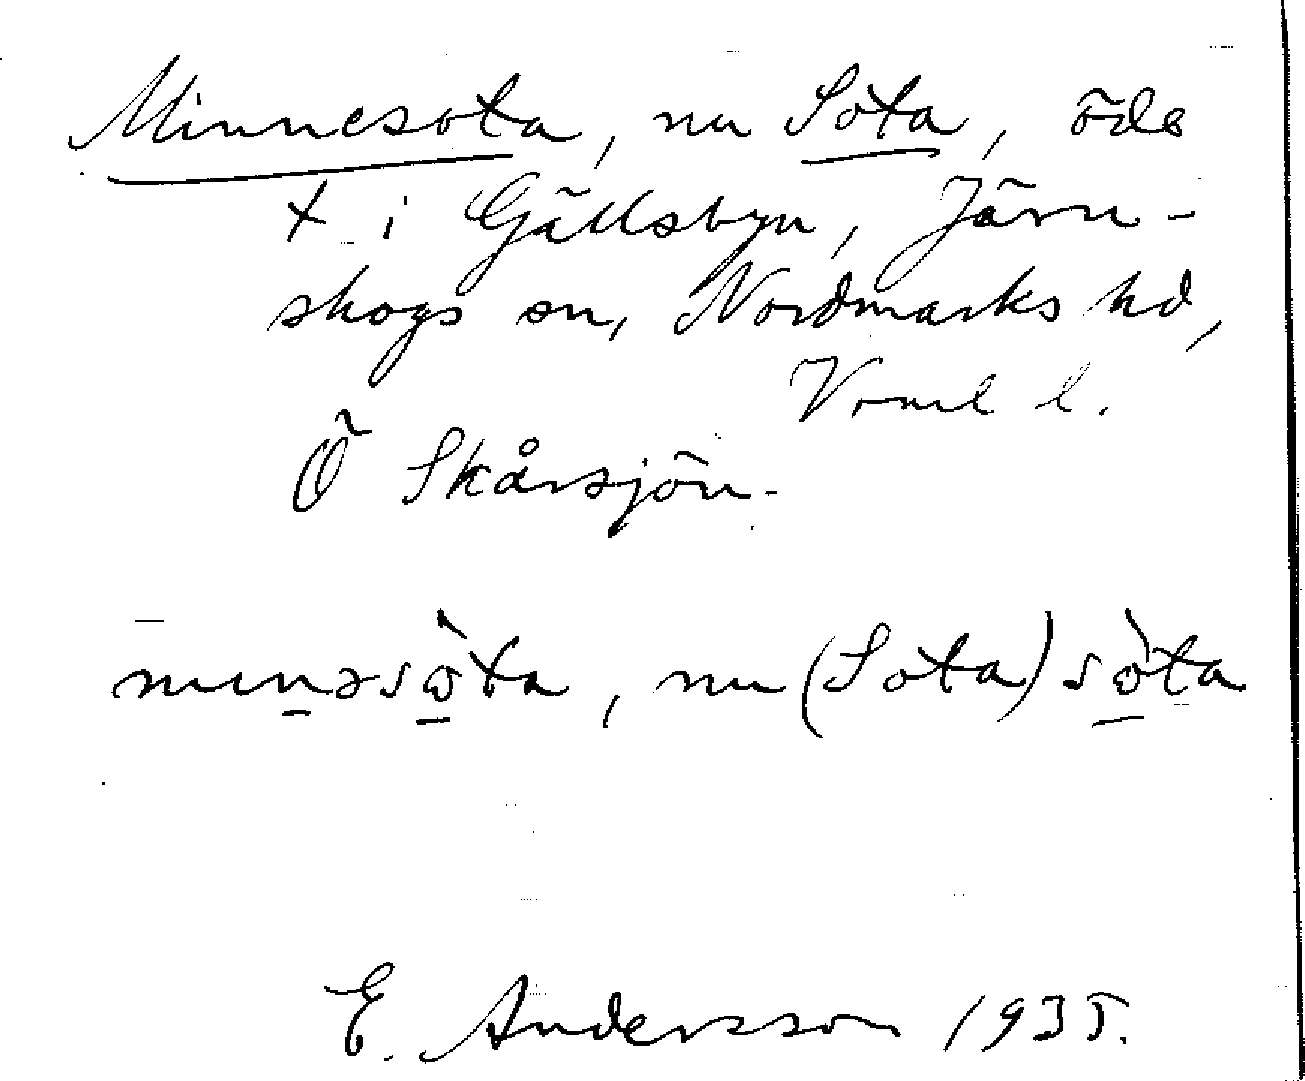 Minnesota, nu Sòta, öde
t i Gällsbyn, Järn-
skogs sn, Nordmarks hd,
Vrml l.
Ö Skårsjön.
minəsòta, nu (Sòta) sòta
E. Andersson 1935.